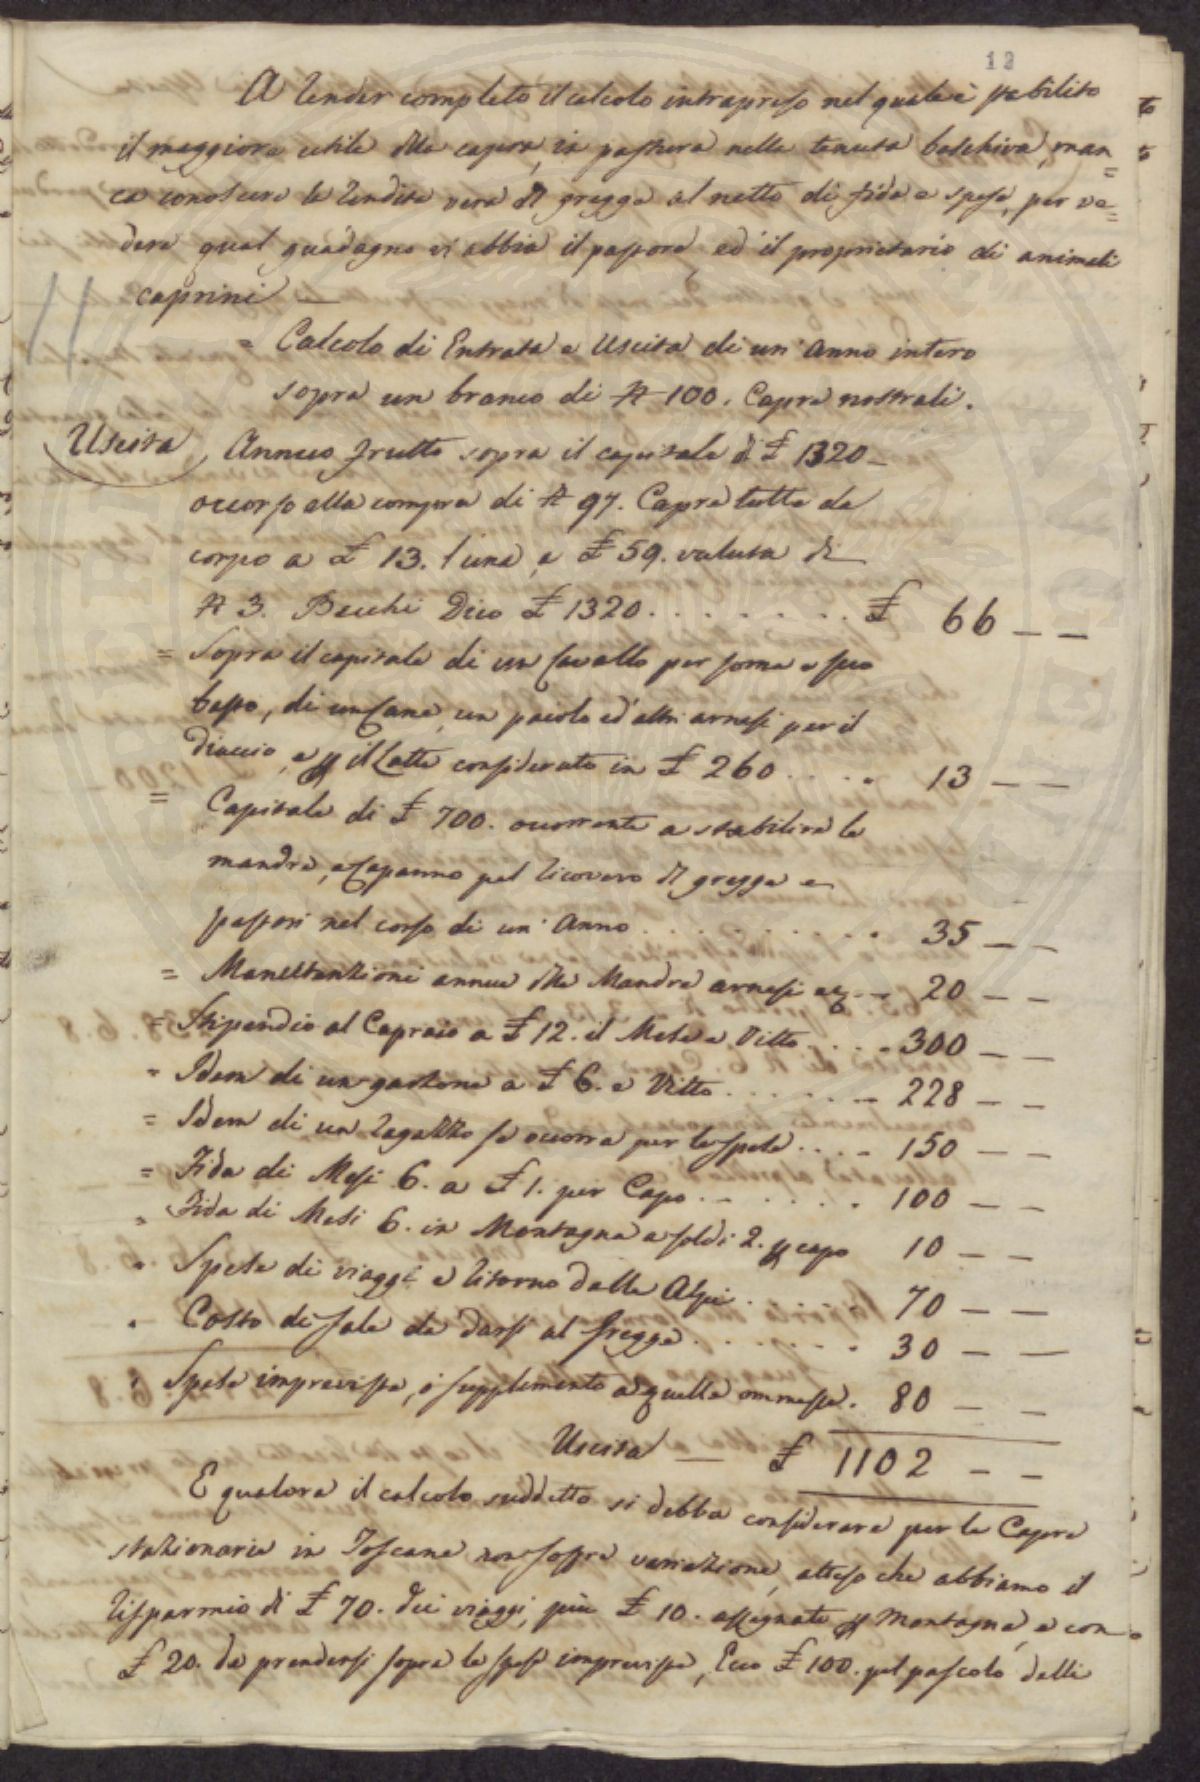 12
A render completo il calcolo intrapreso nel quale è stabilito
il maggiore utile delle capre, in pastura nella tenuta boschiva, man=
ca conoscere la rendita vera del gregge al netto di fida e spese, per ve=
dere qual guadagno vi abbia il pastore ed il proprietario di animali
caprini —
= Calcolo di Entrata e Uscita di un Anno intero
sopra un branco di N 100. Capre nostrali.
Uscita Annuo frutto sopra il capitale di £ 1320 –
occorso alla compra di N 97. Capre tutte da
corpo a £ 13. l'una, e £ 59. valuta di
N 3. Becchi Dico £ 1320. . . . . . . . . £ 66 — —
= Sopra il capitale di un Cavallo per soma e suo
basto, di un Cane, un paiolo ed altri arnesi per il
diaccio, e p il Latte considerato in £ 260 . . . . 13 — —
= Capitale di £ 700. occorrente a stabilire le
mandre, e Capanno pel ricovero del gregge e
pastori nel corso di un Anno . . . . . . . . . . 35 — —
= Manutenzione annua delle Mandre arnesi — 20 — —
= Stipendio al Capraio a £ 12. il Mese e Vitto . . . . 300 — —
= Idem di un garzone a £ 6. e Vitto . . . . . . . 228 — —
= Idem di un ragazzo se occorra per le spese . . . . 150 — —
= Fida di Mesi 6. a £ 1. per Capo . . . . . . . 100 — —
= Fida di Mesi 6. in Montagna a soldi 2. p capo 10 — —
= Spese di viaggi e ritorno dalle Alpi . . . . . 70 — —
= Costo di sale da darsi al gregge . . . . . . . 30 — —
= Spese impreviste, o supplemento a quelle ommesse. 80 — —
Uscita — £ 1102 — —
E qualora il calcolo suddetto si debba considerare per le Capre
stazionarie in Toscana non soffre variazione, atteso che abbiamo il
risparmio di £ 70. dei viaggi, più £ 10. assegnate p Montagna, e con
£ 20. da prendersi sopra le spese impreviste, Ecco £ 100. pel pascolo delli